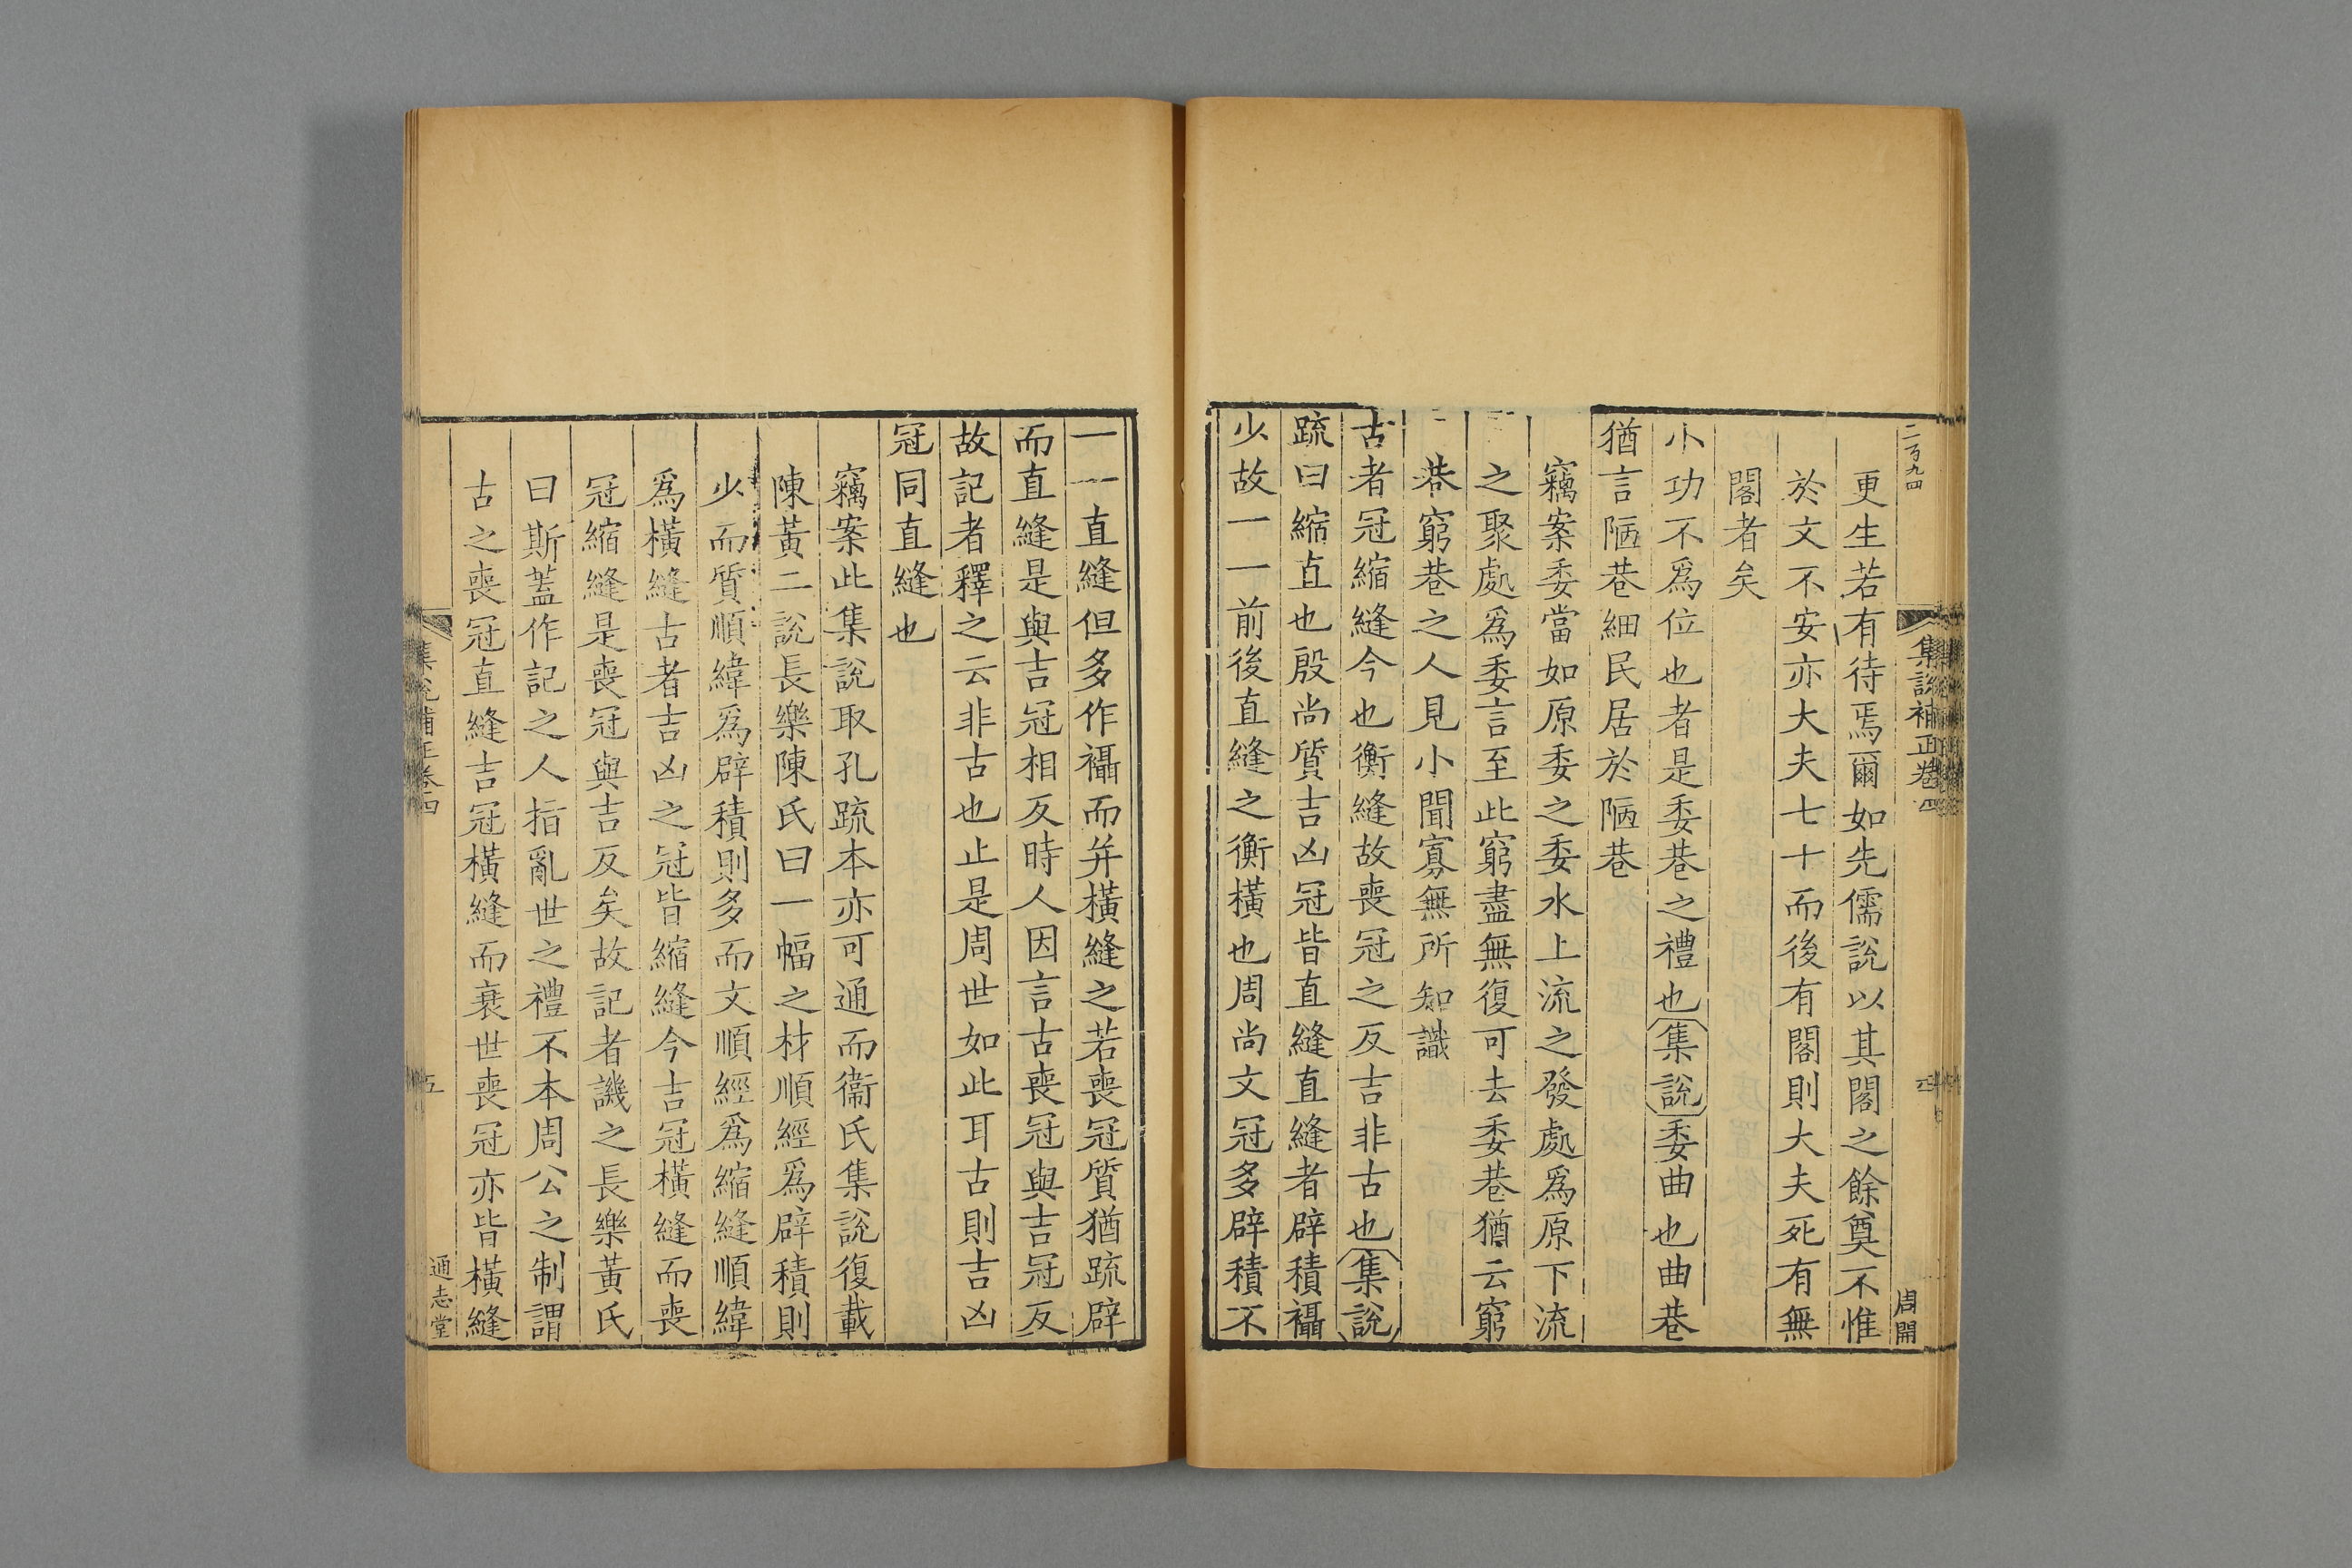 二百九四
集說補正卷四
周開
更生若有待焉爾如先儒說以其閣之餘奠不惟
於文不安亦大夫七十而後有閣則大夫死有無
閣者矣
小功不爲位也者是委巷之禮也集說委曲也曲巷
猶言陋巷細民居於陋巷
竊案委當如原委之委水上流之發處爲原下流
之聚處爲委言至此窮盡無復可去委巷猶云窮
巷窮巷之人見小聞寡無所知識
古者冠縮縫今也衡縫故喪冠之反吉非古也集說
疏曰縮直也殷尚質吉凶冠皆直縫直縫者辟積襵
少故一一前後直縫之衡橫也周尚文冠多辟積不
一一直縫但多作襵而并橫縫之若喪冠質猶疏辟
而直縫是與吉冠相反時人因言古喪冠與吉冠反
故記者釋之云非古也止是周世如此耳古則吉凶
冠同直縫也
竊案此集說取孔疏本亦可通而衞氏集說復載
陳黃二說長樂陳氏曰一幅之材順經爲辟積則
少而質順緯爲辟積則多而文順經爲縮縫順緯
爲橫縫古者吉凶之冠皆縮縫今吉冠橫縫而喪
冠縮縫是喪冠與吉反矣故記者譏之長樂黃氏
曰斯蓋作記之人指亂世之禮不本周公之制謂
古之喪冠直縫吉冠橫縫而衰世喪冠亦皆橫縫
集說補正卷四
五
通志堂